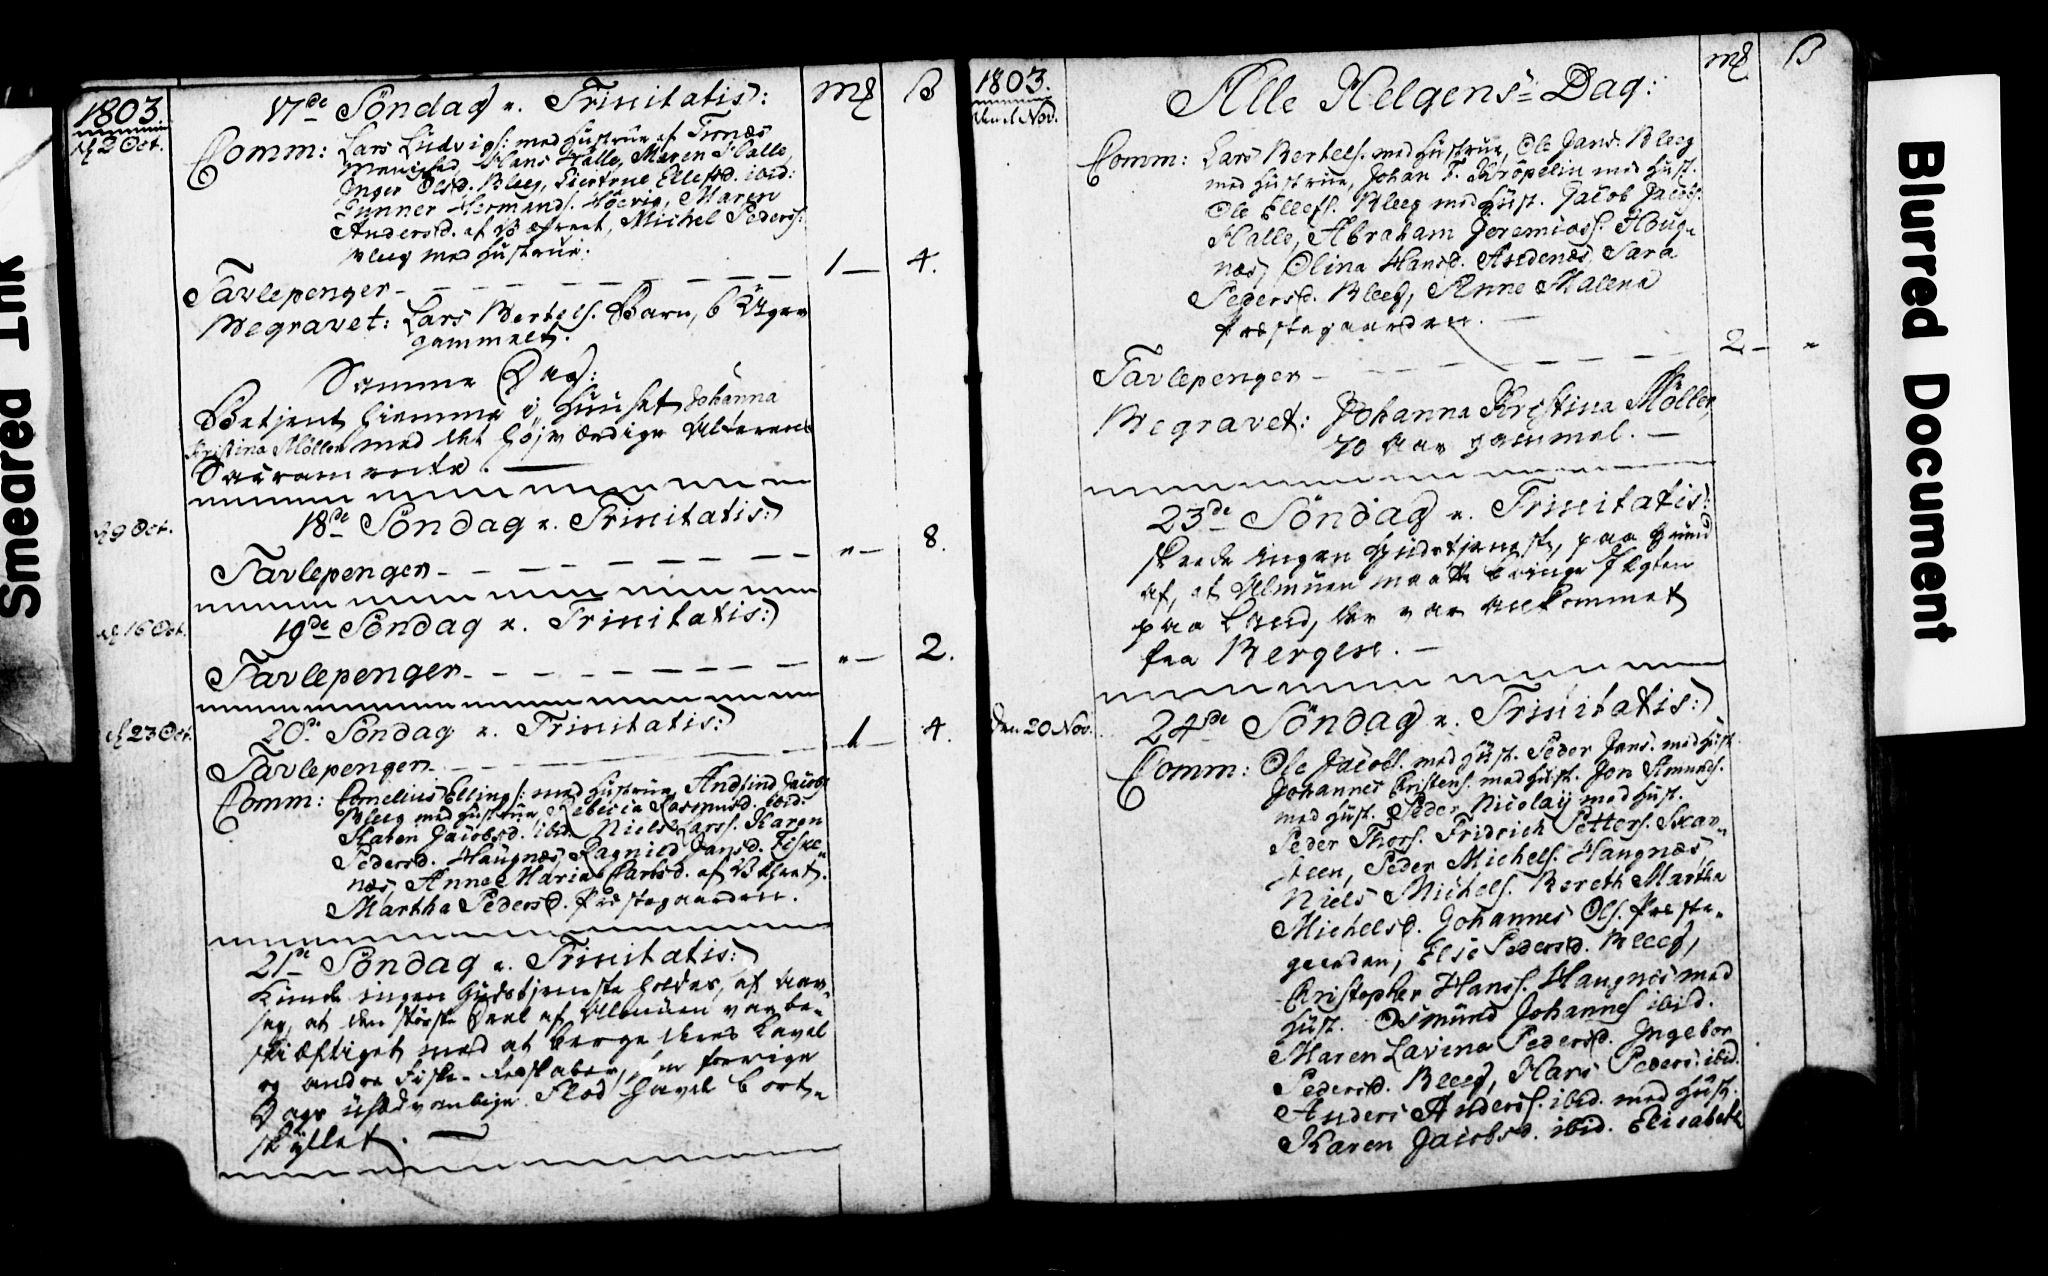 Smeared Ink
1803.
17de Söndag e. Trinitatis:
mk ß
d 2 Oct.
Comm: Lars Ludvigs: med Hustrue af Trones
Menighed, Hans Halle, Maren Halle,
Inger Olsd. Bleeg, Giertrue Ellefsd. ibid:
Gunner Hermands. Hoevig, Maren
Andersd. af Michel Peders:
Bleeg med Hustrue.
Tavlepenger - - - - 1 - 4.
Begravet: Lars Bertels. Barn, 6 Uger
gammelt.
Samme Dag:
Betjent hiemme i Huuset Johanna
Kristina Möller med det höjværdige Alterens
Sacramente.
d 9 Oct.
18de Söndag e. Trinitatis:
Tavlepenger - - - - " - 8.
d 16 Oct.
19de Söndag e. Trinitatis:
Tavlepenger - - - - " - 2.
d 23 Oct.
20de Söndag e. Trinitatis:
Tavlepenger - - - - 1 - 4.
Comm: Cornelius Ellings: med Hustrue, Jacobs
Bleeg med Hustrue, Rebecca Rasmusd. ibid:
Karen Jacobsd. ibid. Niels Larss. Karen
Pedersd. Haugnæs, Ragnild Jansd. Fiske-
næs, Anne Maria Larsd. af
Martha Pedersd. Præstegaarden.
21de Söndag e. Trinitatis:
Kunde ingen Gudstjeneste holdes, af Aar-
sag, at den störste Deel af Almuen var be-
skiæftiget med at berge deres Lavel
og andre Fiske-Redskaber, som forrige
Dags usædvanlige Flod havde bort-
skyllet.
1803.
mk ß
Alle Helgens-Dag:
den 1 Nov.
Comm: Lars Bertels. med Hustrue, Ole Jans. Bleeg
med Hustrue, Johan F. Kröpelin med Hust.
Ole Ellefs. Bleeg med Hust. Jacob Jacobs.
Halle, Abraham Jeremiass. Houg-
næs, Olina Hansd. Andenæs Sara
Pedersd. Bleeg, Anne Malena
Præstegaarden.
Tavlepenger - - - - 2 - "
Begravet: Johanna Kristina Möller,
70 Aar gammel.
23de Söndag e. Trinitatis:
skede ingen Gudstjeneste, paa Grund
af, at Almuen maatte bringe Jægten
paa Land, der var ankommet
fra Bergen.
Den 20 Nov.
24de Söndag e. Trinitatis:
Comm: Ole Jacobs. med Hust. Peder Jans. med Hust.
Johannes Kristens. med Hust. Jon Amunds.
med Hust. Peder Nicolaij med Hust.
Peder Thors. Fridrich Petters. Skar-
steen, Peder Michels. Haugnæs
Niels Michels. Bereth Martha
Michelsd. Johannes Ols. Præste-
gaarden, Else Pedersd. Bleeg,
Christopher Hanss. Haugnæs med
Hust. Osmund Johannes ibid.
Maren Lavina Pedersd. Ingebor
Pedersd. Bleeg, Hans Peders. ibid.
Anders Anderss. ibid. med Hust.
Karen Jacobsd. ibid. Elisabeth
Blurred Document